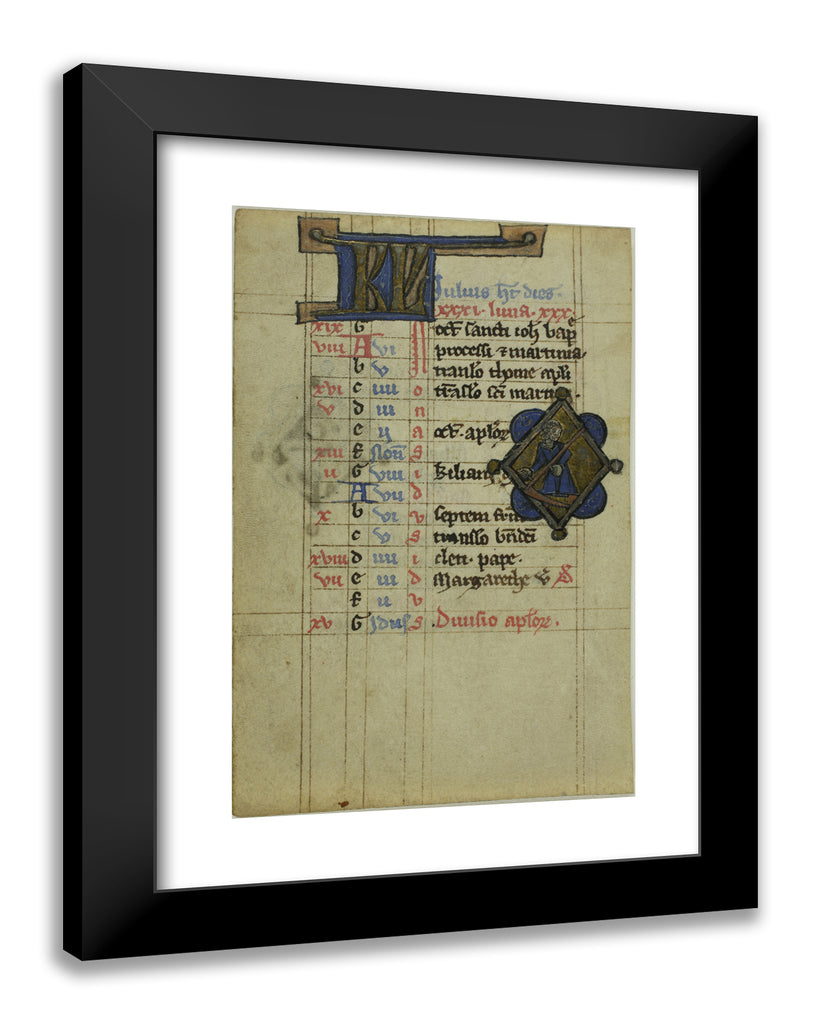 KL Julius ht dies.
xxxi. luna. xxx.
xix G oct sancti ioh bap
viii A vi processi & martinia
b v translo thome apli
xvi c iiii traslo sci martin
v d iii
e ii oct. aplor
xiii f Non
ii G viii kilian
A vii
x b vi septem frm
c v translo bndci
xviii d iiii cleti. pape.
vii e iii Margarethe v
f ii
xv G Idus Diuisio aplor.